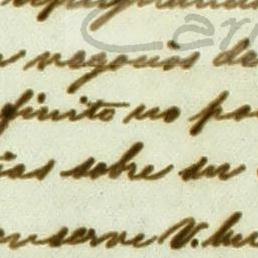 negocios de
finito no po
ias sobre su
onserve V. bu